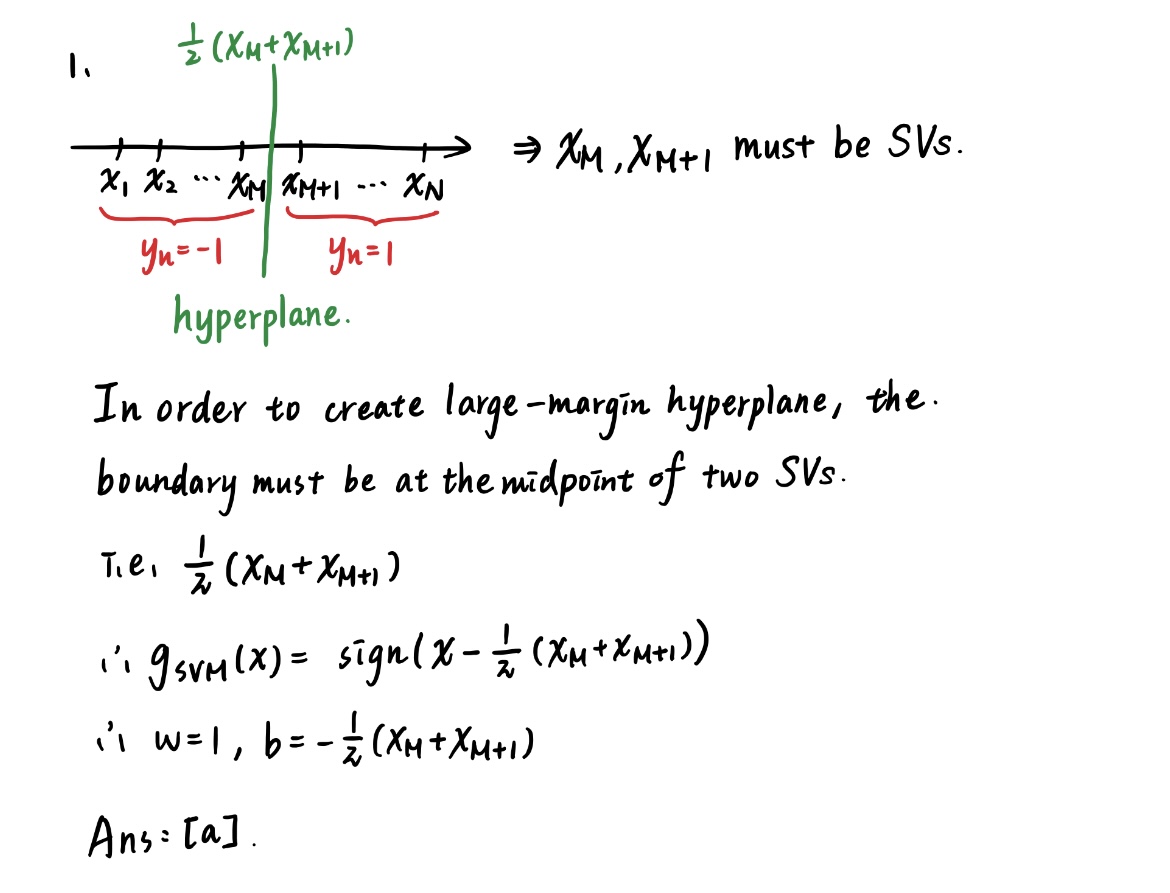 1.
½(x_M+x_{M+1})
x_1 x_2 ... x_M x_{M+1} ... x_N ⇒ x_M, x_{M+1} must be SVs.
y_n=-1 y_n=1
hyperplane.
In order to create large-margin hyperplane, the.
boundary must be at the midpoint of two SVs.
i.e. ½(x_M+x_{M+1})
∴ g_{SVM}(x) = sign(x - ½(x_M+x_{M+1}))
∴ w=1, b=-½(x_M+x_{M+1})
Ans: [a].